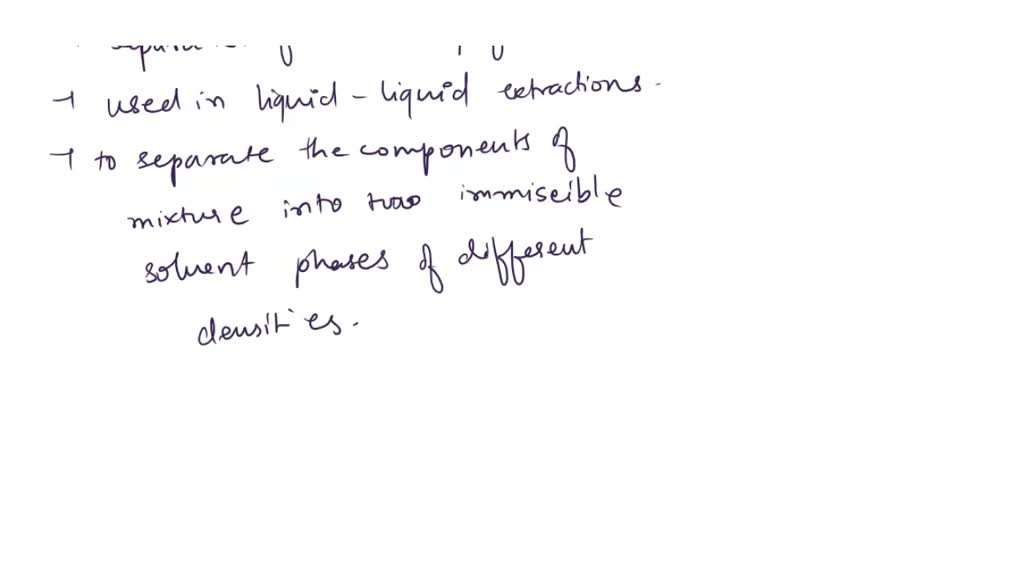 → used in liquid - liquid extractions.
→ to separate the components of
mixture into two immiscible
solvent phases of different
densities.